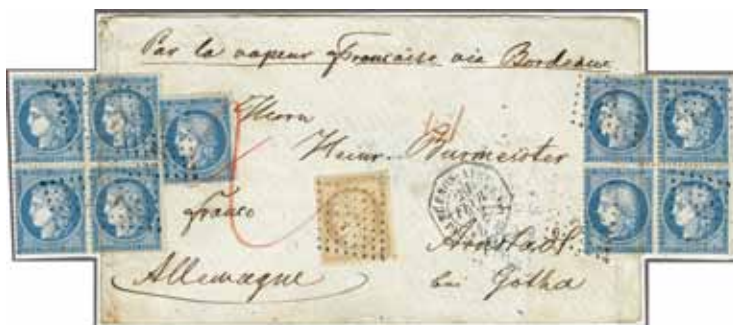 Par la vapeur Française via Bordeaux
Herrn
Heinr. Burmeister
Franco
Arnstadt
Allemagne
bei Gotha